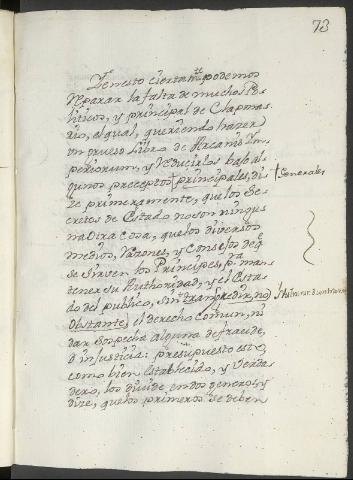 73
Y en esto ciertamte podemos
reparar la falta de muchos Po-
liticos, y principal de Clapmar
rio, el qual, queriendo hazer
un grueso Libro de Arcanis Im-
periorum, y reducirlos bajo al-
gunos preceptos + principales, di
+ Generales
ze primeramente, que los Se-
cretos de Estado no son ningu-
na otra cosa, que los diversos
medios, razones, y consejos de q̃
se sirven los Principes, pa man-
tener su Authoridad, y el Esta-
do del publico, sin transgredir, no
obstante, el derecho comun, ni
dar sospecha alguna de fraude,
ô injusticia: presupuesto esto,
como bien establecido, y verda-
dero, los divide en dos generos, y
dize, que los primeros se deben